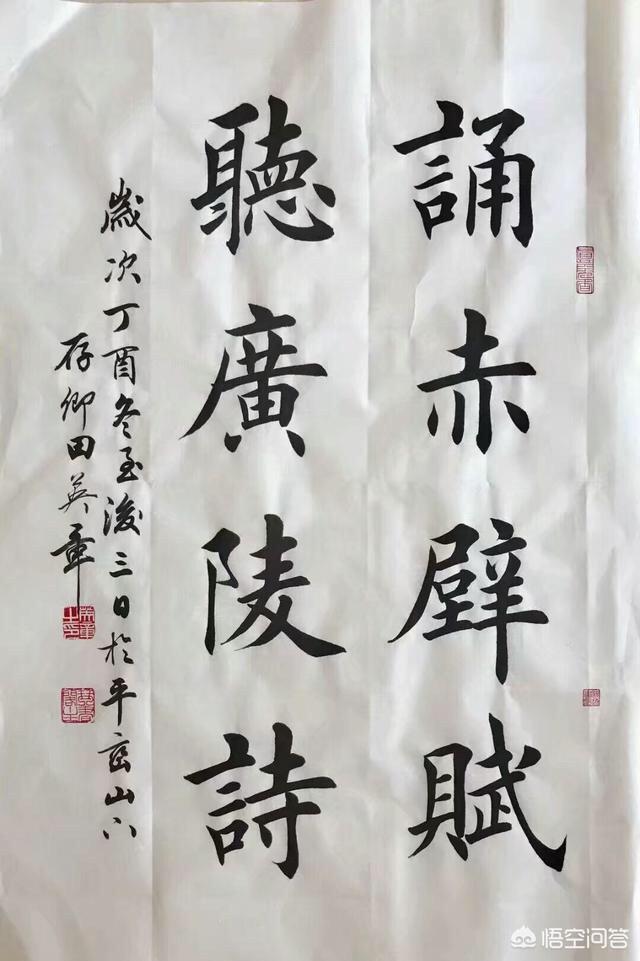 誦赤壁賦
聽廣陵詩
歲次丁酉冬至後三日於平巒山下
存卿田英章
悟空问答